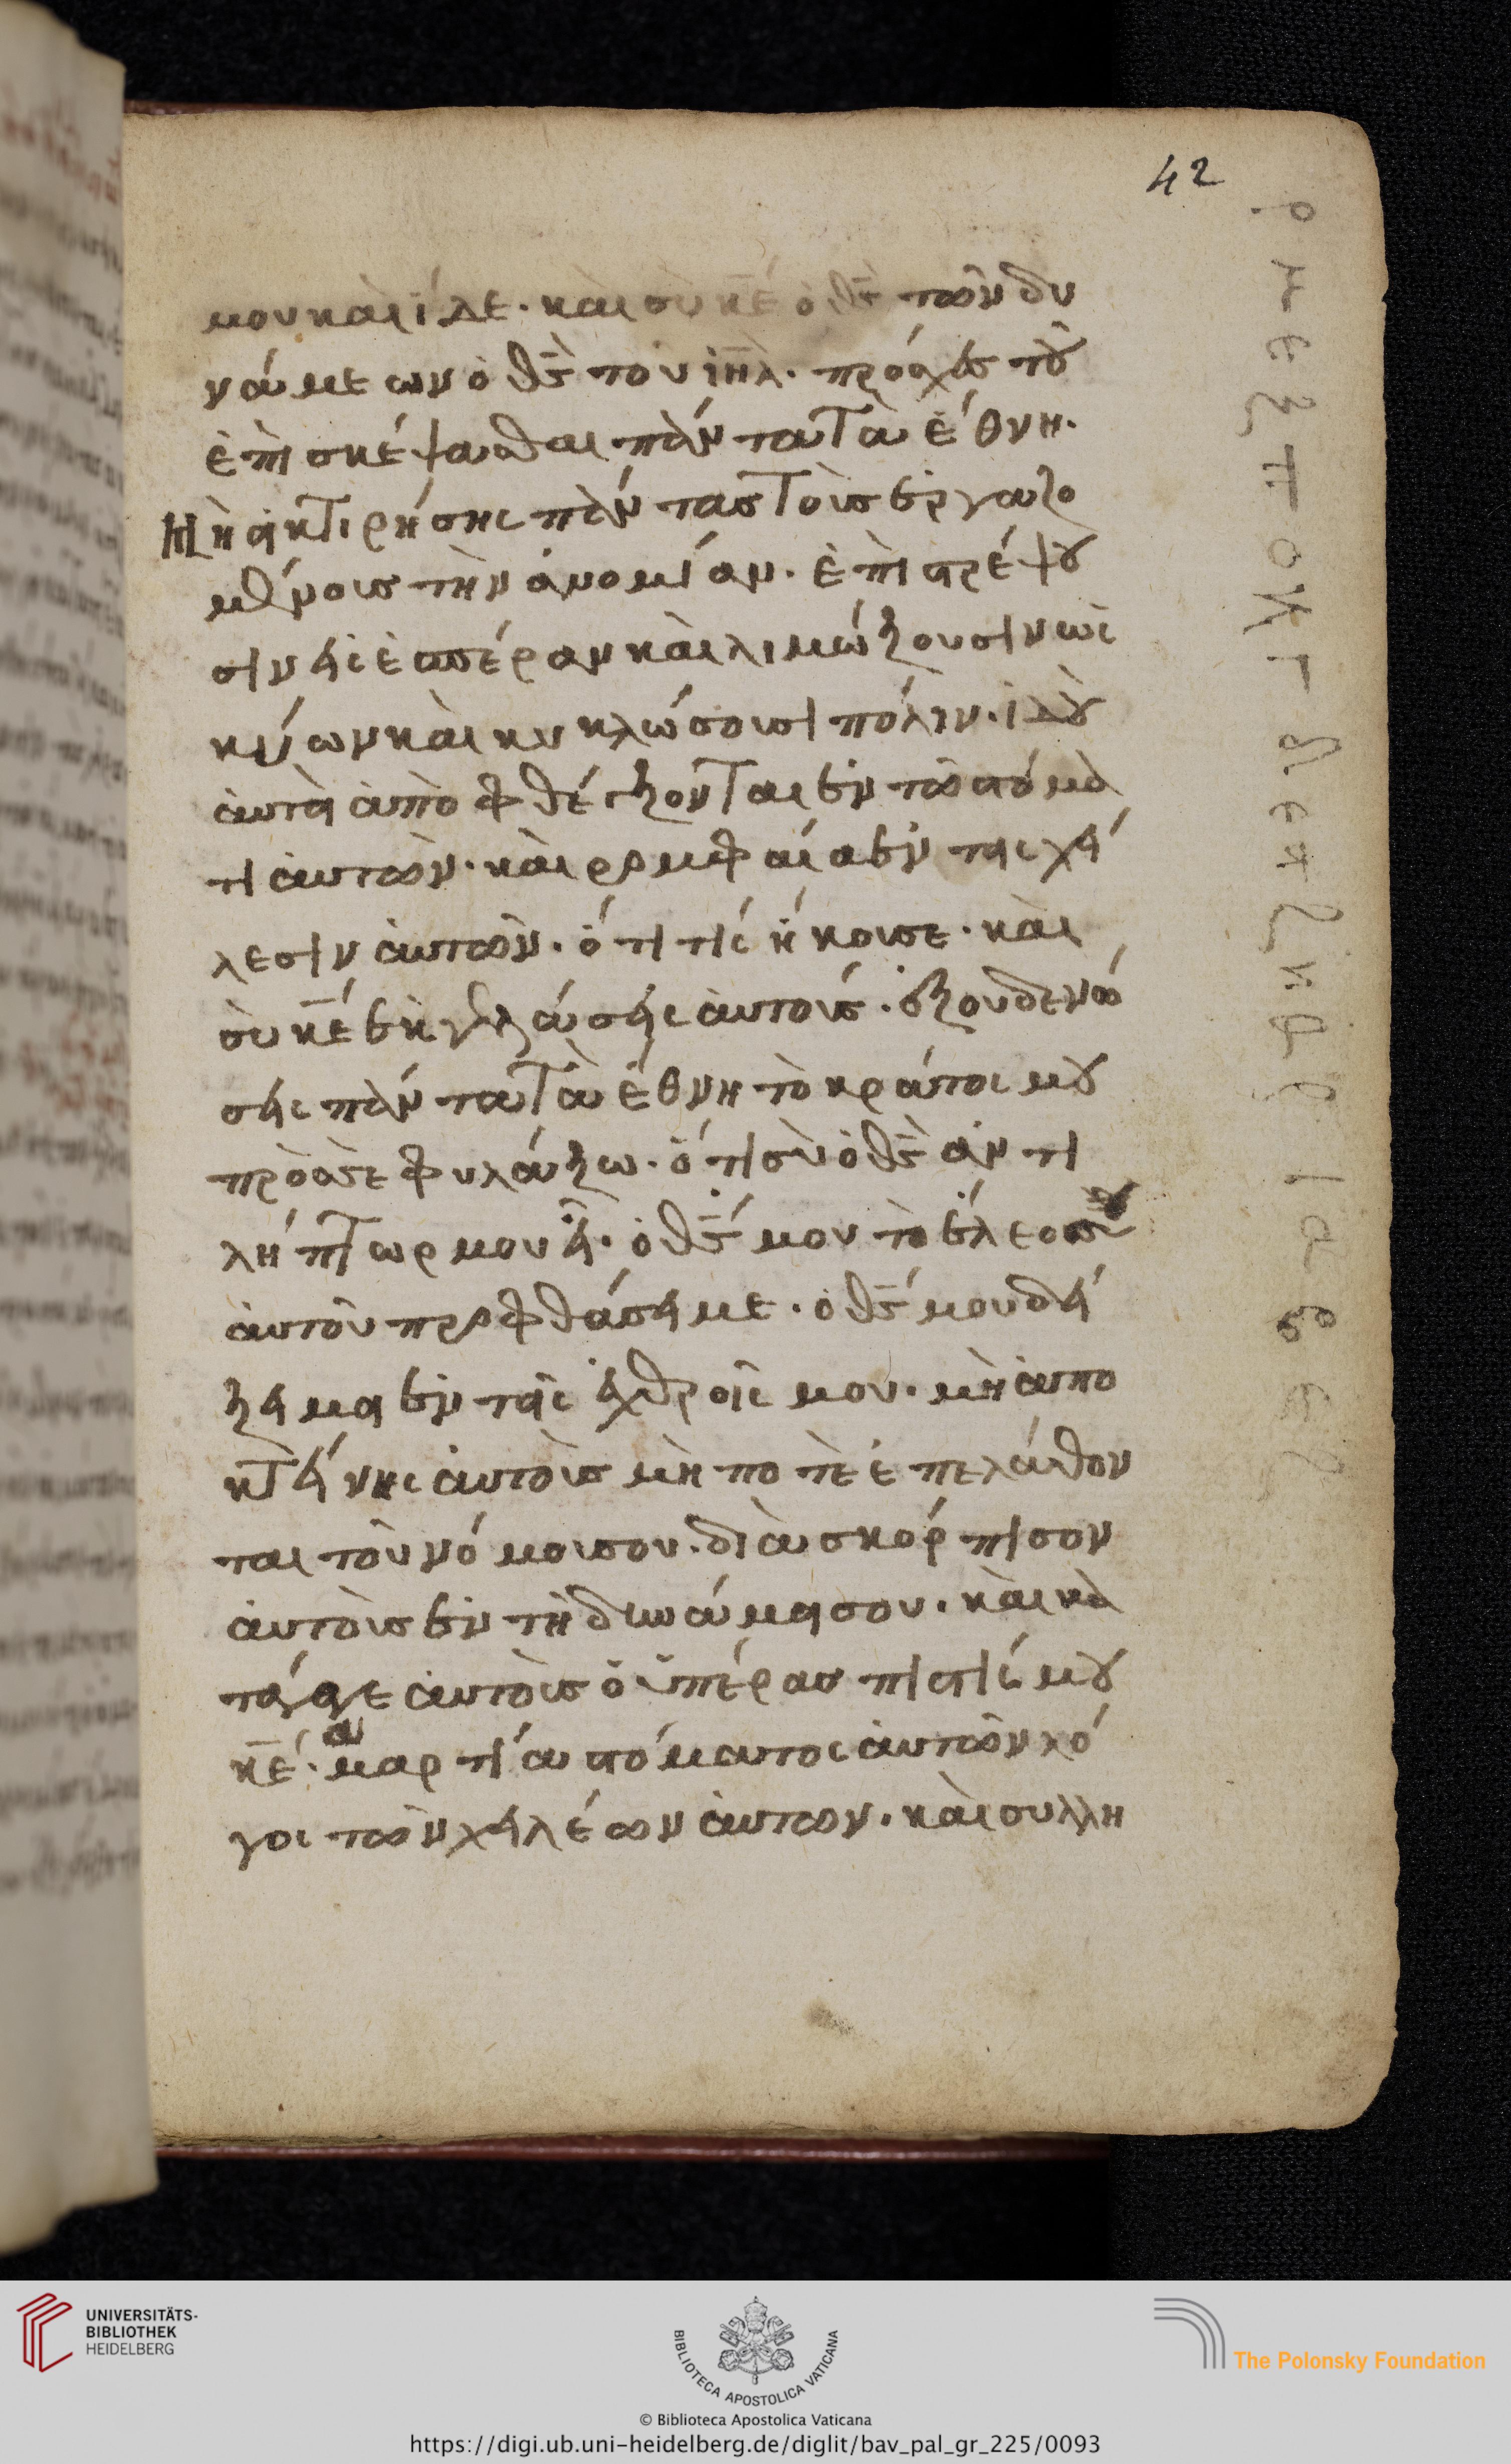 42
μου και ϊδε · και συ κ̅ε̅ ο θ̅ς̅ των δυ
νάμεων ὁ θ̅ς̅ του ι̅η̅λ̅ · πρόσχες τοῦ
ἐπισκέψασθαι πάντα τὰ ἔθνη ·
Μὴ οἰκτιρήσης πάντας τοὺς ἐργαζο
μένους τὴν ἀνομίαν · ἐπιστρέψου
σιν εἰς ἑσπέραν καὶ λιμώξουσιν ὡς
κύων καὶ κυκλώσουσι πόλιν · ἰδοὺ
αὐτοὶ ἀποφθέγξονται ἐν τῶ στόμα
τι αὐτῶν · καὶ ρομφαία ἐν τοις χεί
λεσιν αὐτῶν · ὅτι τίς ἤκουσε · καὶ
σὺ κ̅ε̅ ἐκγελάσεις αὐτούς · ἐξουδενώ
σεις πάντα τὰ ἔθνη τὸ κράτος μου
πρὸς σὲ φυλάξω · ὅτι σὺ ὁ θ̅ς̅ ἀντι
λήπτωρ μου εἶ · ὁ θ̅ς̅ μου τὸ ἔλεος
αὐτοῦ προφθάσει με · ὁ θ̅ς̅ μου δεί
ξει μοι ἐν τοῖς ἐχθροῖς μου · μὴ ἀπο
κτείνης αὐτοὺς μὴ ποτὲ ἐπελάθον
ται τοῦ νόμου σου · διασκόρπισον
αὐτοὺς ἐν τῆ δυνάμει σου · καὶ κα
τάγαγε αὐτοὺς ὁ ὑπερασπιστίς μου
κ̅ε̅ · ἁμαρτία στόματος αὐτῶν λό
γος τῶν χειλέων αὐτων · καὶ συλλη
UNIVERSITÄTS-
BIBLIOTHEK
HEIDELBERG
BIBLIOTECA APOSTOLICA VATICANA
The Polonsky Foundation
© Biblioteca Apostolica Vaticana
https://digi.ub.uni-heidelberg.de/diglit/bav_pal_gr_225/0093